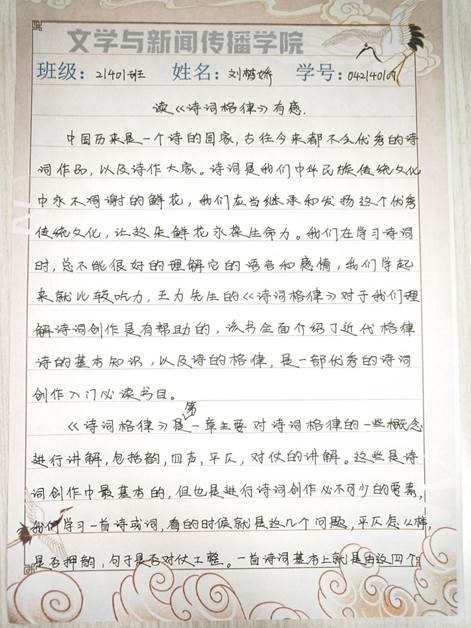 文学与新闻传播学院
班级：21401班 姓名：刘 娇 学号：042140109
读《诗词格律》有感.
中国历来是一个诗的国家，古往今来都不乏优秀的诗
词作品，以及诗作大家。诗词是我们中华民族传统文化
中永不凋谢的鲜花，我们应当继承和发扬这个优秀
传统文化，让这朵鲜花永葆生命力。我们在学习诗词
时，总不能很好的理解它的语言和感情，我们学起
来就比较吃力，王力先生的《诗词格律》对于我们理
解诗词创作是有帮助的，该书全面介绍了近代格律
诗的基本知识，以及诗的格律，是一部优秀的诗词
创作入门必读书目。
《诗词格律》是第一章主要对诗词格律的一些概念
进行讲解，包括韵，四声，平仄，对仗的讲解。这些是诗
词创作中最基本的，但也是进行诗词创作必不可少的要素，
我们学习一首诗或词，看的时候就是这几个问题，平仄怎么样，
是否押韵，句子是否对仗工整。一首诗词基本上就是由这四个